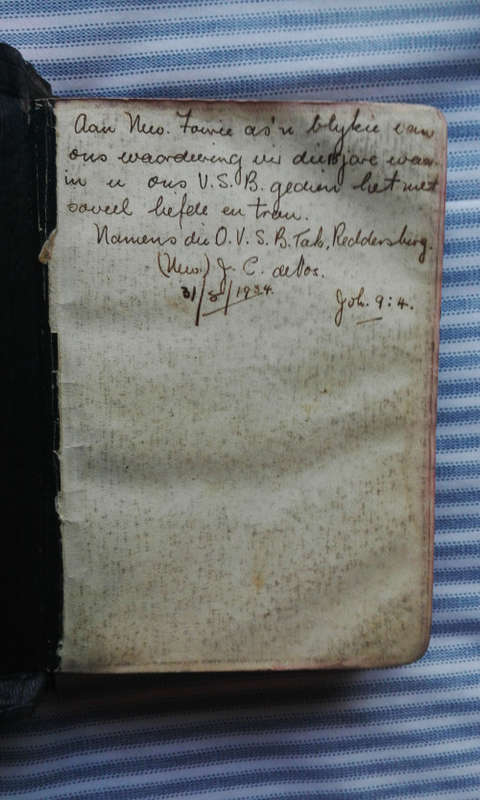 Aan Mev. Fourie as'n blykie van
ons waardering vir diensjare waar-
in u ons V.S.B. gedien het met
soveel liefde en trou.
Namens die O.V.S.B. Tak, Reddersburg.
(Mev.) J. C. de Vos.
31/8/1934.
Joh. 9:4.